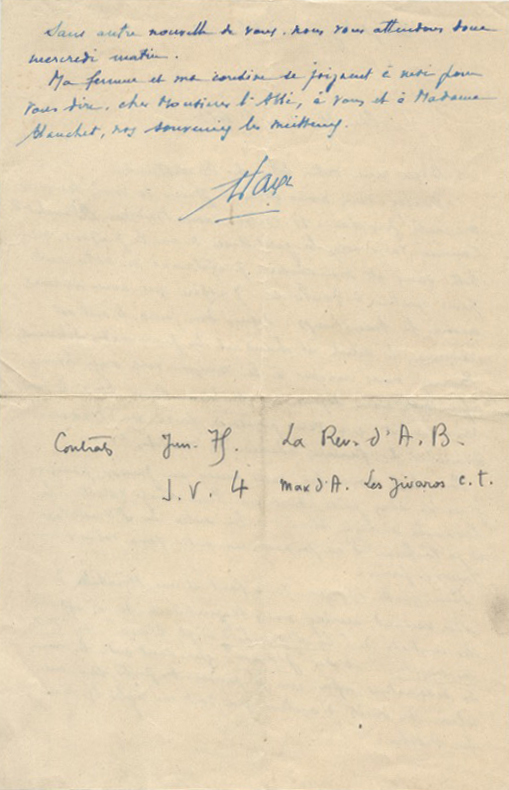 Sans autre nouvelle de vous, nous vous attendons donc
mercredi matin.
Ma femme et ma cousine se joignent à moi pour
vous dire, cher Monsieur l'Abbé, à vous et à Madame
Blanchet, nos souvenirs les meilleurs.
Contrats Jun. 75. La Rev. d'A. B.
J. V. 4 Max d'A. Les Jivaros c. t.